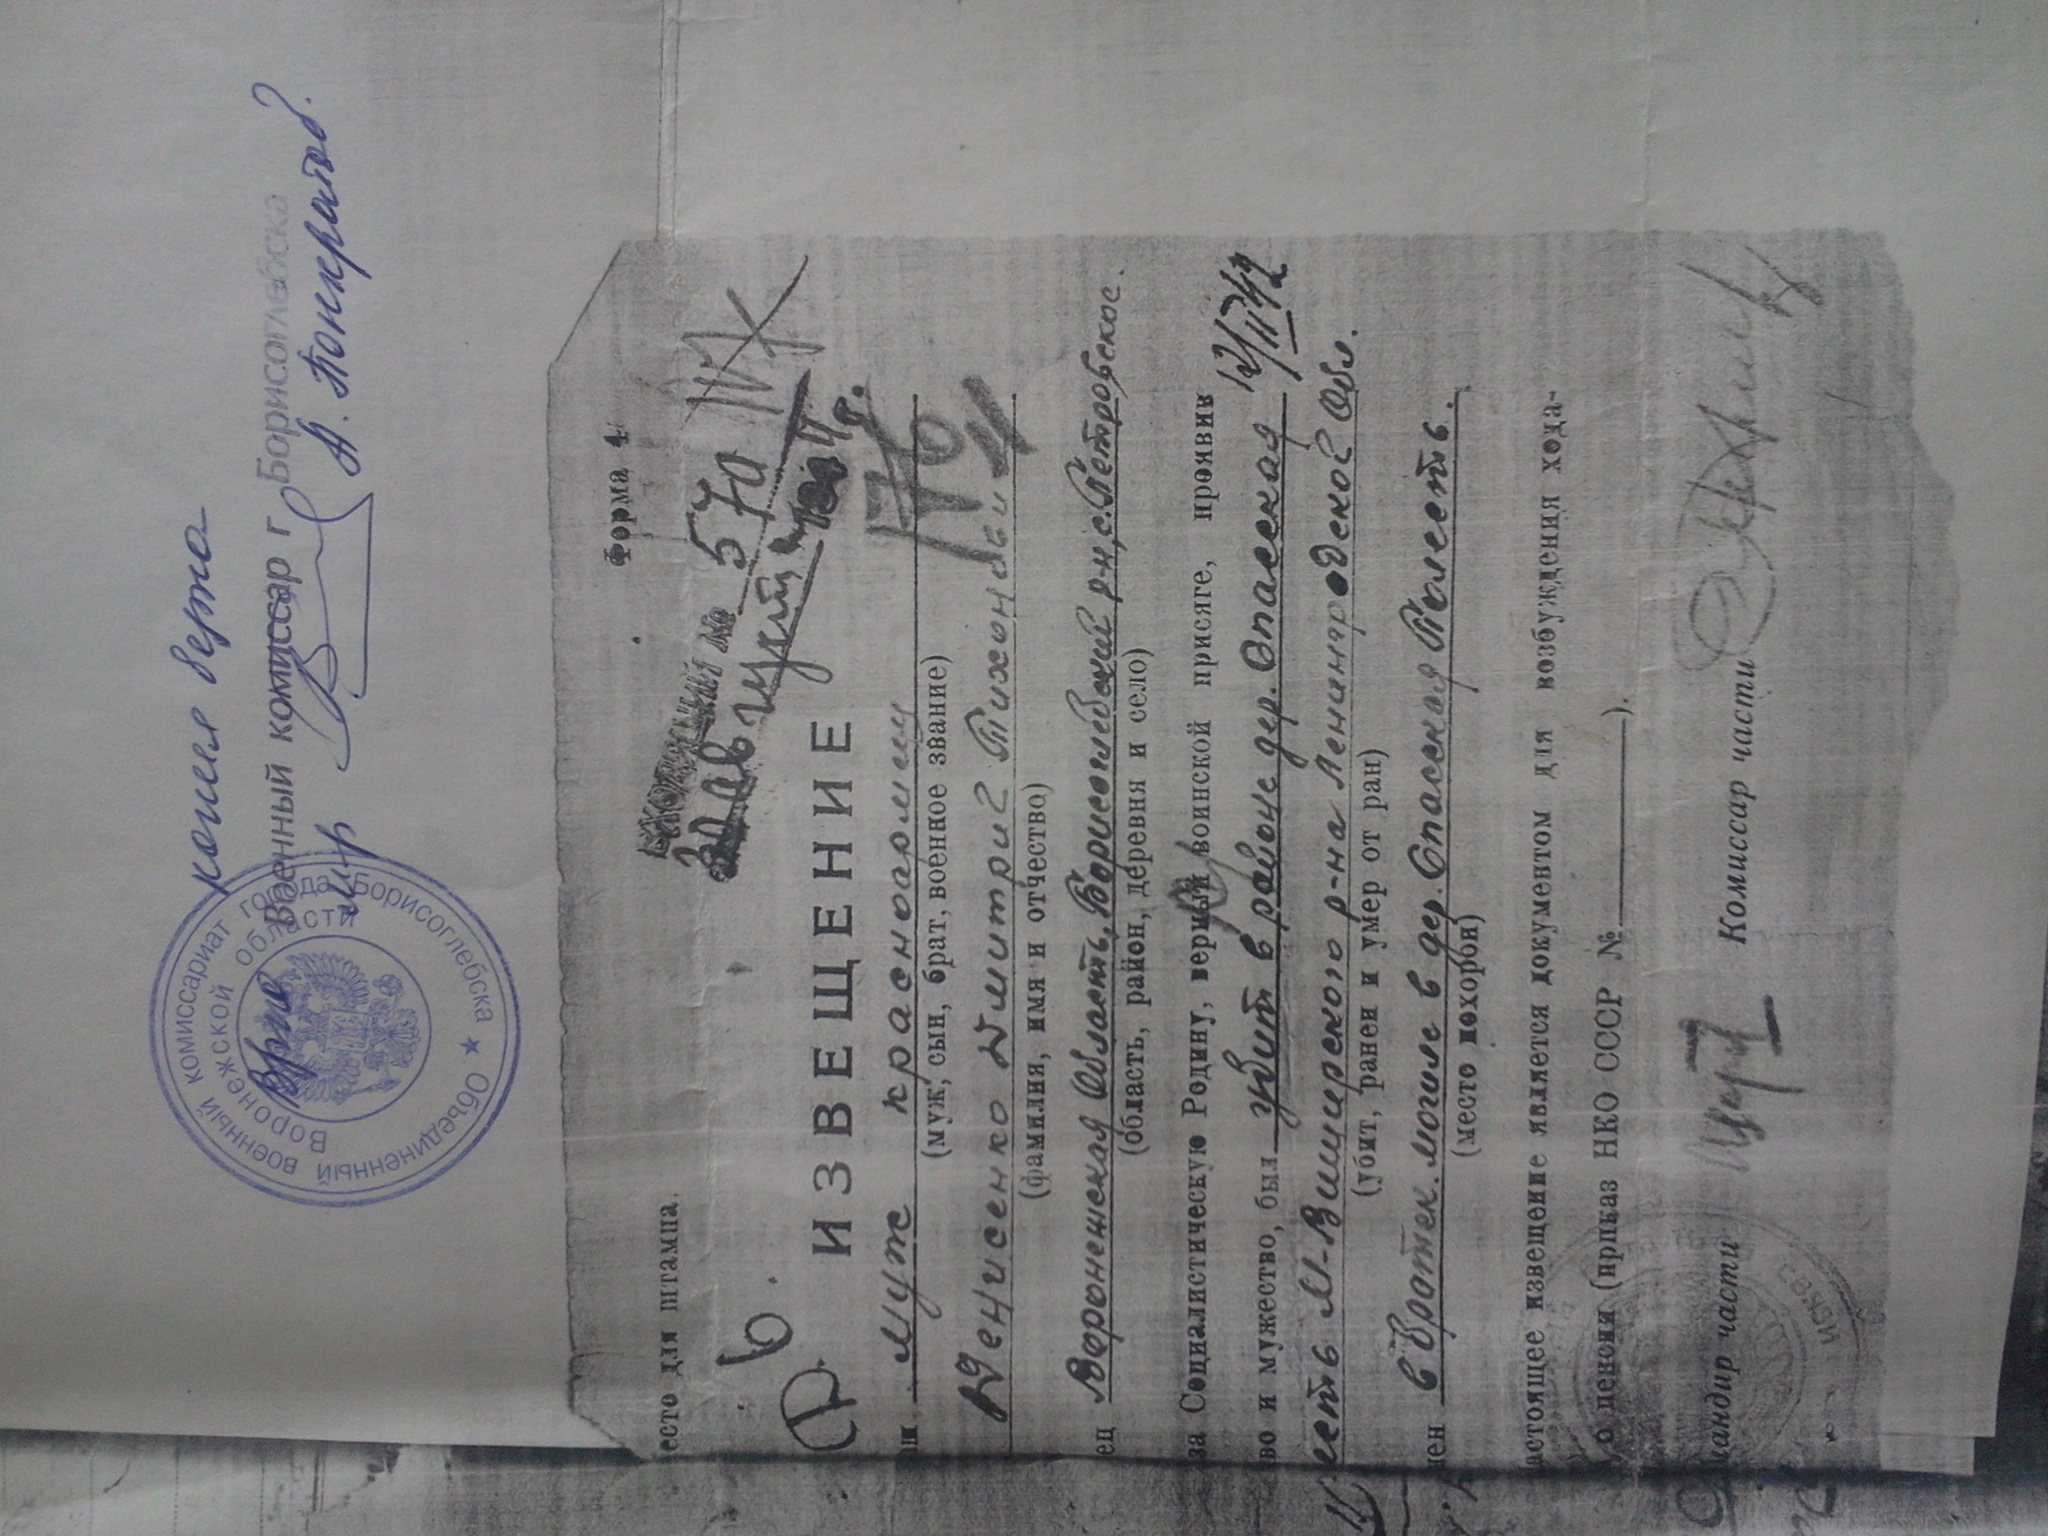 копия верна
Военный комиссар г Борисоглебска
А. Понкратов.
Объединенный военный комиссариат города Борисоглебска
Воронежской области
Форма 4
есто для штампа.
№ 570
ИЗВЕЩЕНИЕ
ш муж красноармеец
(муж, сын, брат, военное звание)
Денисенко Дмитрий Тихонович
(фамилия, имя и отчество)
ец Воронежская Область, Борисоглебский р-н, с. Петровское.
(область, район, деревня и село)
за Социалистическую Родину, верный воинской присяге, проявив
во и мужество, был убит в районе дер. Спасская
12/II 42
есть М-Вишерского р-на Ленинградской Обл.
(убит, ранен и умер от ран)
ен в братск. могиле в дер. Спасская Полесть.
(место похорон)
астоящее извещение является документом для возбуждения хода-
о пенсии (приказ НКО СССР № ).
андир части Комиссар части